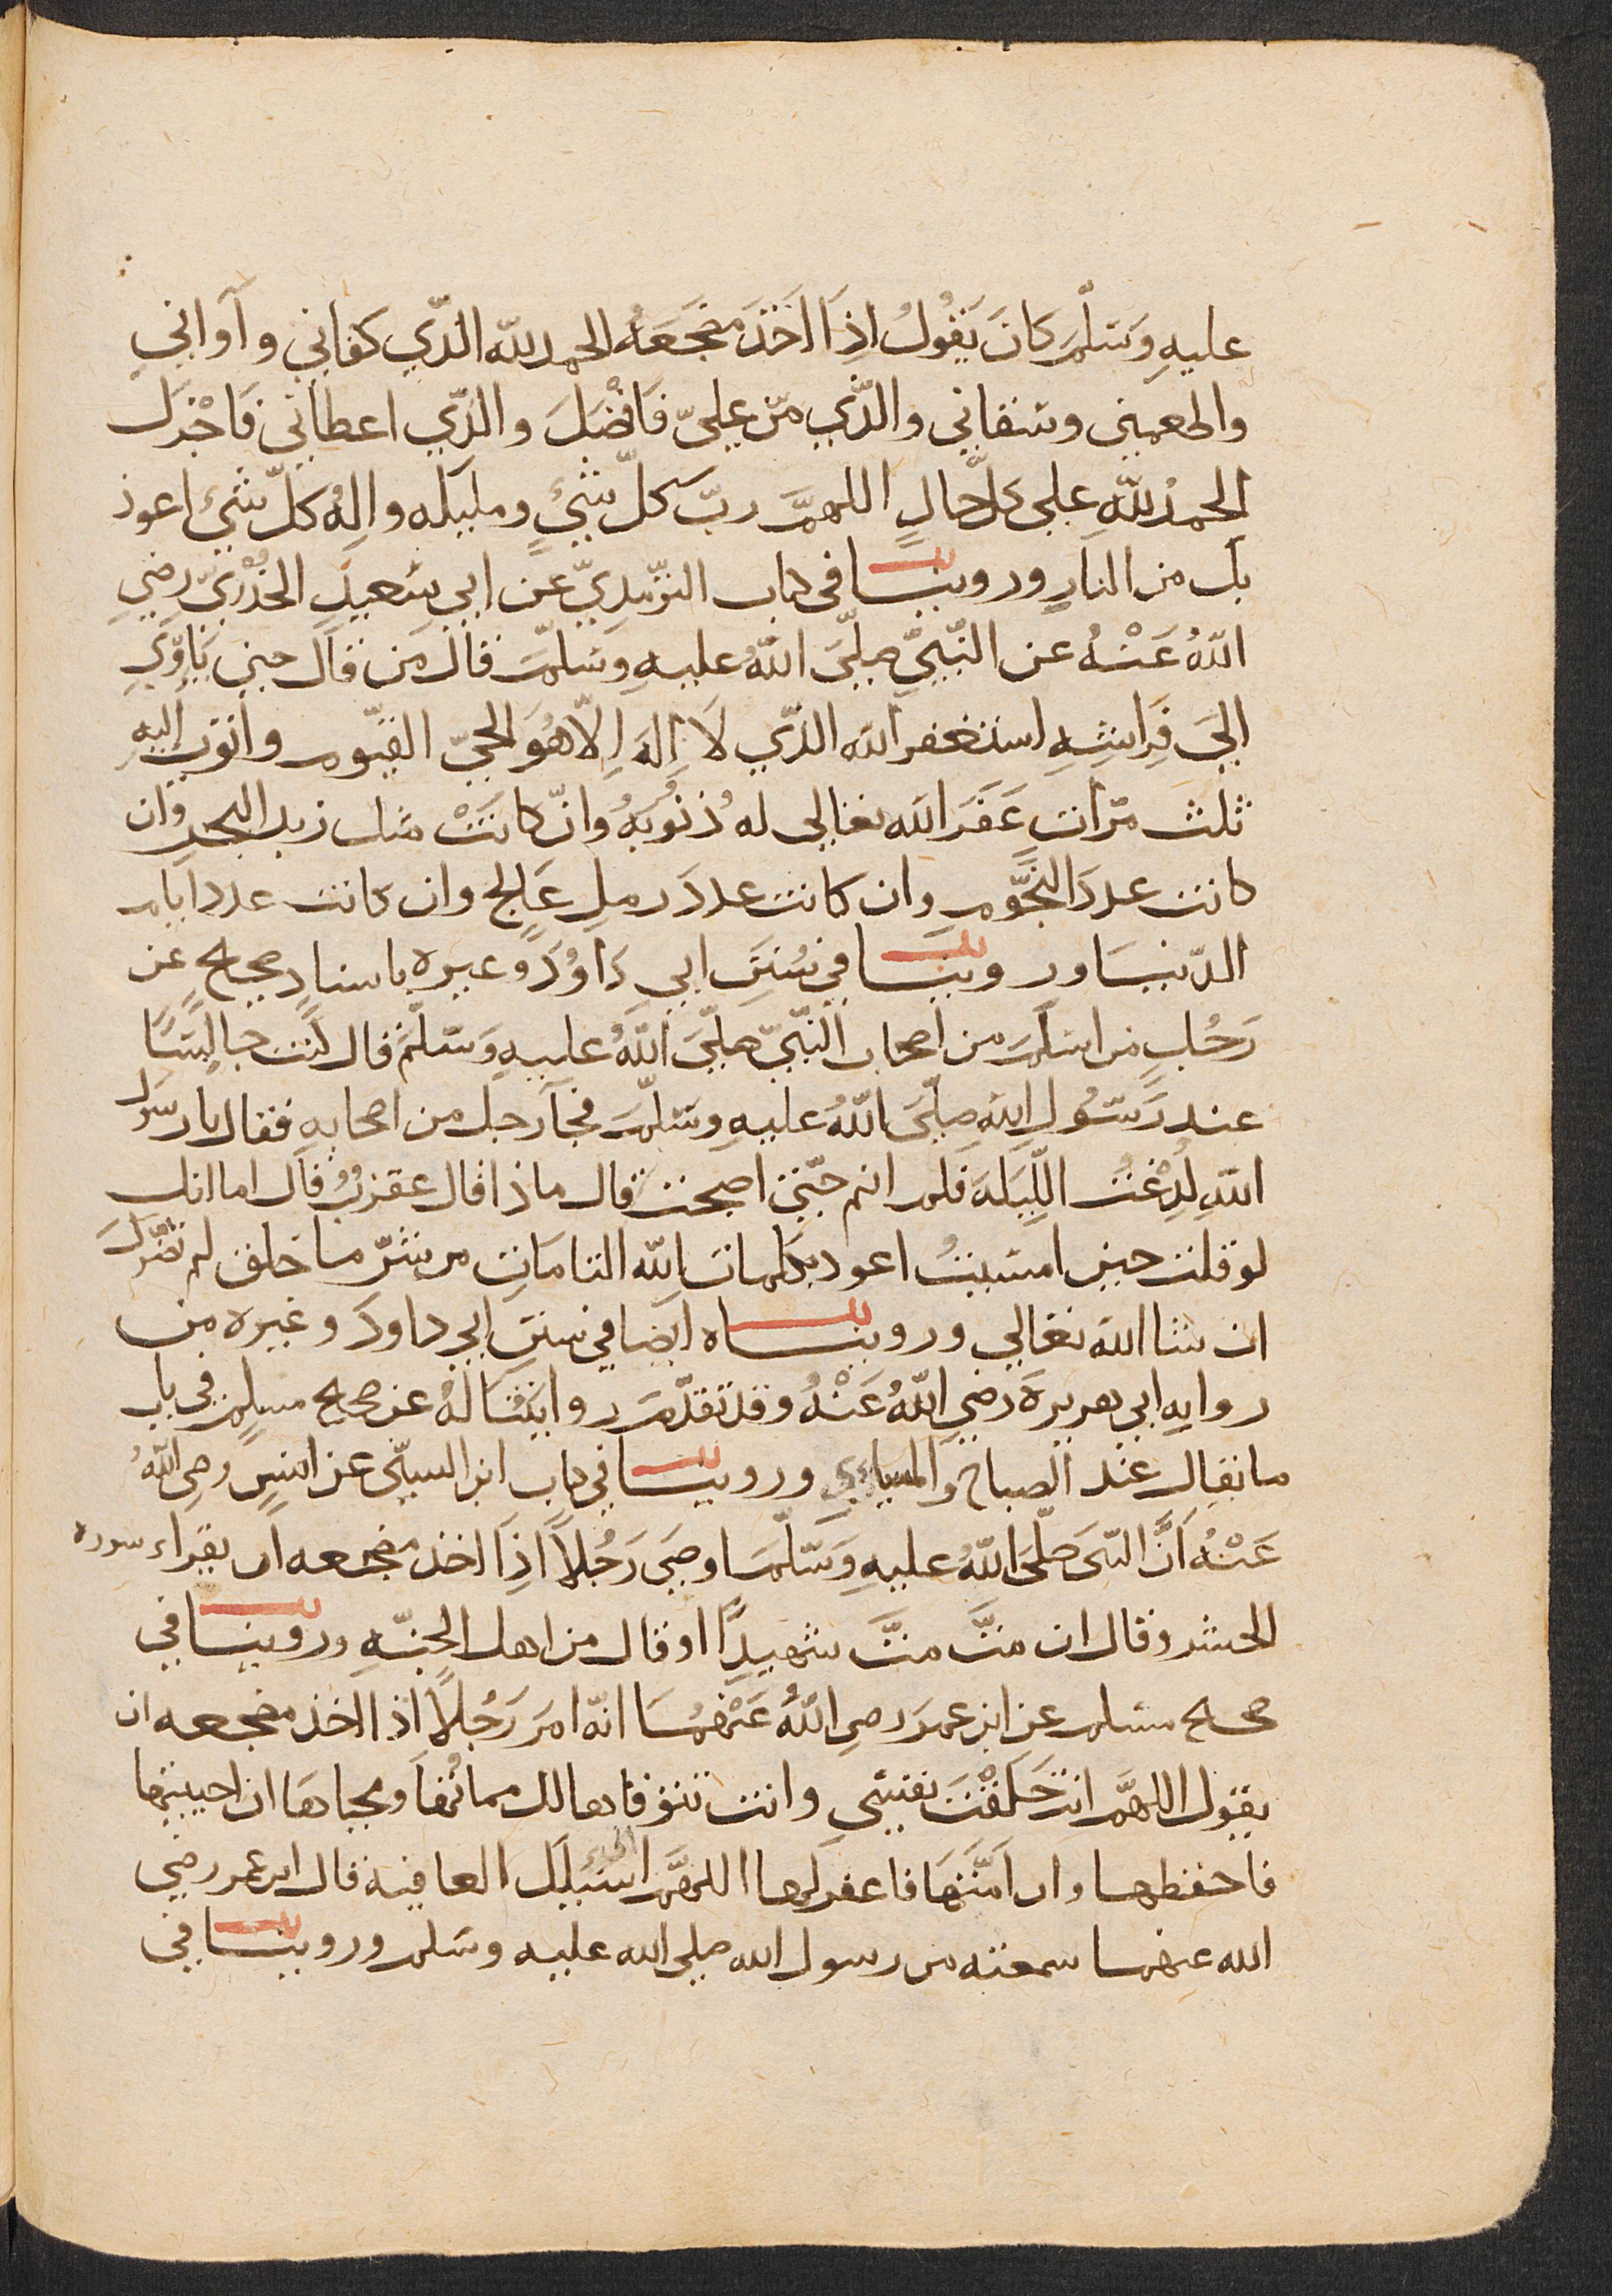 عليهِ وَسَلّمَ كَانَ يَقُولُ اذِا اَخَذَ مَضجَعَهُ الحمد للّه الذّي كفاني وآواني
واطعمني وسَقاني والذّي منّ عليّ فَافْضَلَ والذّي اعطاني فَاجْزَلَ
الحمدُ للّهِ على كلّ حالٍ اللهمَّ ربّ كلّ شئٍ ومليكَه واِلهُ كلّ شئ اعوذ
بك من النارِ وروينا في كتاب الترّمِذِيّ عن ابي سَعيدٍ الخُدْرِيّ رضي
اللّهُ عَنْهُ عن النّبيّ صلّىَ اللّهُ عليهِ وَسَلّمَ قال مَن قال حين يَاوْي
الىَ فِرَاشِهِ استغفر اللّه الذّي لاَ اِلهَ اِلاّ هُوَ الحيّ القيّوم واتوب اليهِ
ثلث مرّات غَفَرَ اللّه تعالى لهُ ذُنُوبَهُ وانّ كانَتْ مثل زبد البحر وان
كانت عددَ النّجُومِ وان كانت عددَ رملِ عَالجٍ وان كانت عدد ايام
الدّنيَا وروينا في سُنَنِ ابي دَاوُدَ وغيره باسنادٍ صحيحٍ عن
رَجُلٍ من اسلَمَ من اصحاب النّبيّ صلّىَ اللّهُ عليهِ وَسَلّمَ قال كُنت جالِسًا
عند رَسُولِ اللّه صلّىَ اللّهُ عليهِ وسَلّمَ فجآ رجل من اصحابِهِ فقال يا رسَول
اللّهِ لُدِغْتُ اللّيَلَة فلم انم حتّى اصبحت قال ماذا قال عقربُ قال اما انك
لو قلت حين امسَيتُ اعوذ بكلماتِ اللّه التامّاتِ من شرّ ما خلق لم تضرّك
ان شا اللّه تعالى وروينـاه ايضا في سنن ابي داودَ وغيره من
روايه ابي هريرةَ رضي اللّهُ عَنْهُ وقد تقدّمَ روايتنا لهُ عن صحيح مسلمٍ في باب
ما يقال عند الصباح والمسا وروينا في كتاب ابن السنّي عن انسٍ رضي اللّهُ
عَنْهُ اَنَّ النبّى صَلّىَ اللّهُ عليهِ وَسَلّمَ اوصَى رَجُلاً اذِا اخذ مضجعه ان يقراء سورة
الحشر وقال ان متَّ متَّ شهيدًا او قال من اهل الجنّهِ وروينا في
صحيح مسلم عن ابن عمرَ رضي اللّهُ عَنْهُمَا انّه امرَ رَجُلاً اذا اخذ مضجعه ان
يقول اللهمَّ انتَ خَلَقْتَ نفسي وانت تتوفاها لك مماتُها ومحياهَا ان احييتها
فاحفظها وان اَمَتَّهَا فاغفر لها اللهمَّ اني اسئلك العافية قال ابن عمر رضي
اللّه عنهما سمعته من رسول اللّه صلى اللّه عليه وسَلم وروينا في